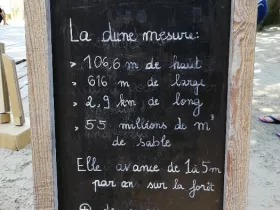 La dune mesure:
> 106,6 m de haut
> 616 m de large
> 2,9 km de long
> 55 millions de m³
de sable
Elle avance de 1 à 5 m
par an sur la forêt